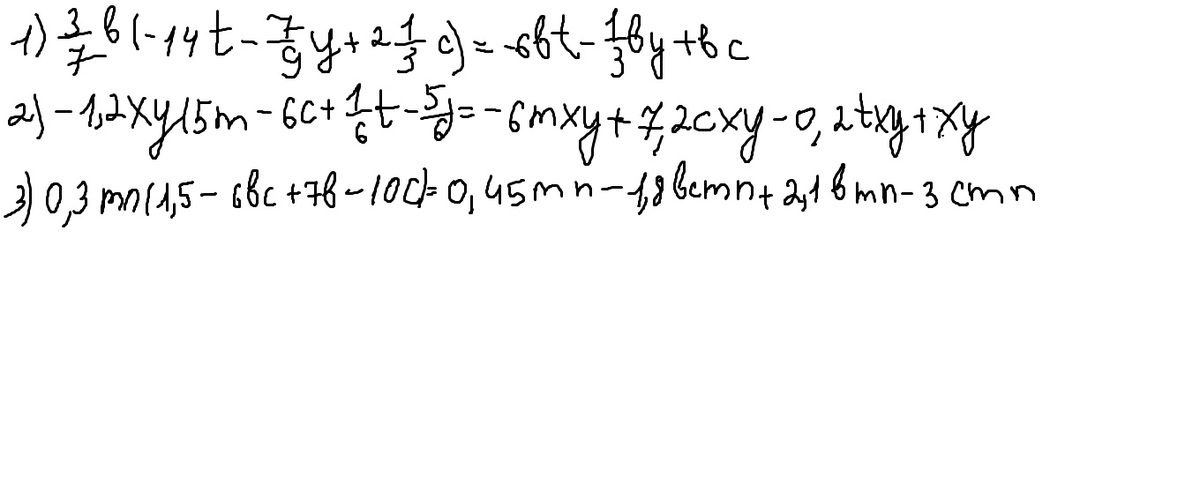 1) 3/7 в (-14t - 7/9 y + 2 1/3 c) = -6вt - 1/3 вy + вc
2) -1,2xy(5m - 6c + 1/6 t - 5/6) = -6mxy + 7,2cxy - 0,2txy + xy
3) 0,3mn(1,5 - 6вc + 7в - 10c) = 0,45mn - 1,8вcmn + 2,1вmn - 3cmn